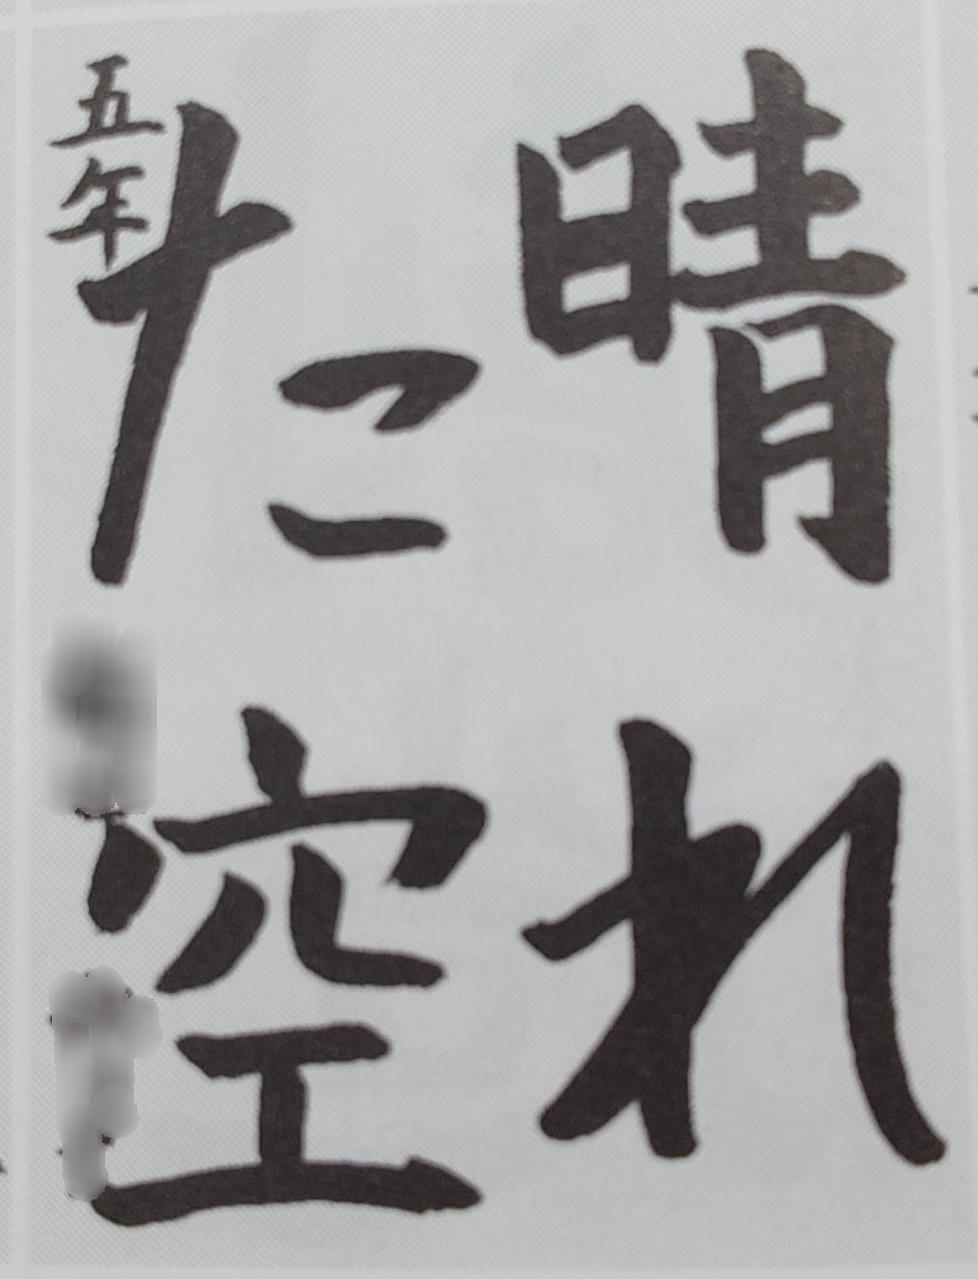 晴れ
た空
五年